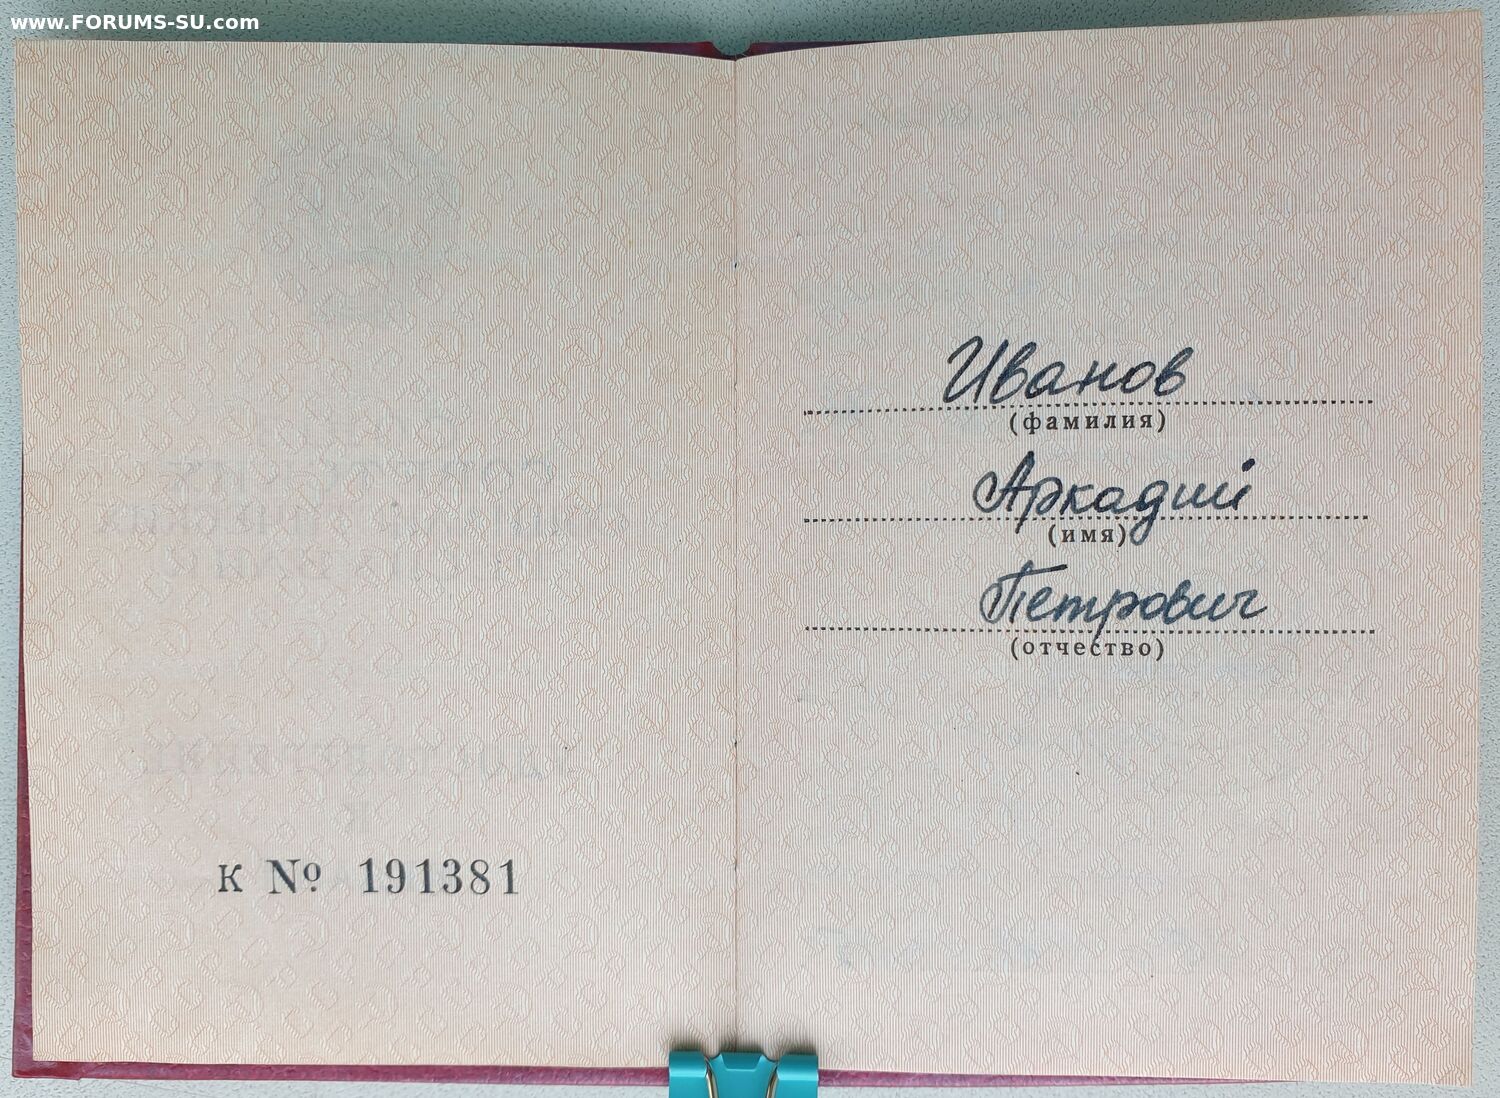 www.FORUMS-SU.com
К № 191381
Иванов
(фамилия)
Аркадий
(имя)
Петрович
(отчество)